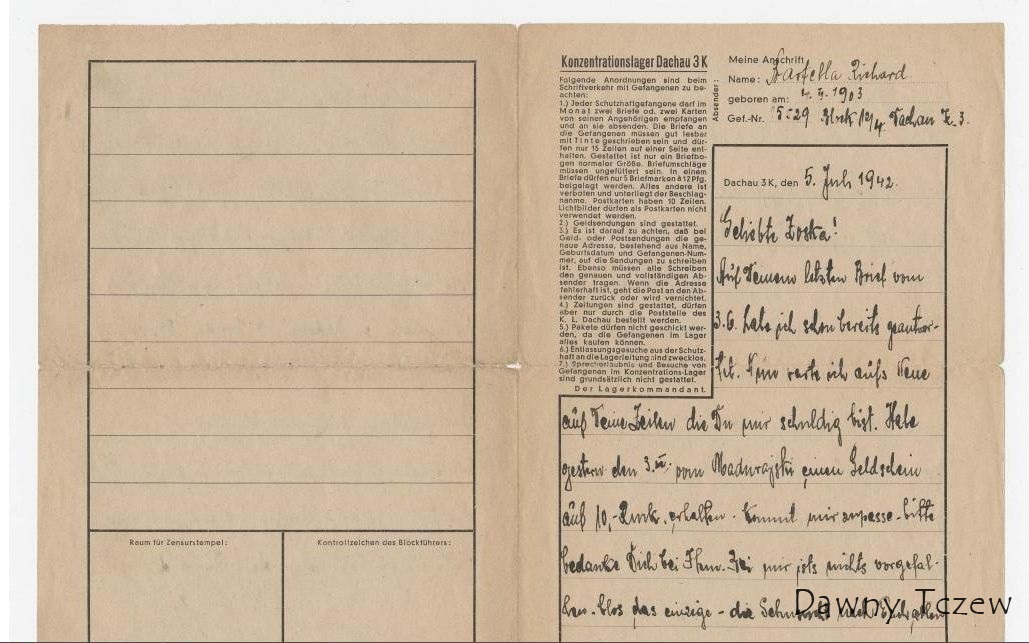 Raum für Zensurstempel:
Kontrollzeichen des Blockführers:
Konzentrationslager Dachau 3 K
Folgende Anordnungen sind beim
Schriftverkehr mit Gefangenen zu be-
achten:
1.) Jeder Schutzhaftgefangene darf im
Monat zwei Briefe od. zwei Karten
von seinen Angehörigen empfangen
und an sie absenden. Die Briefe an
die Gefangenen müssen gut lesbar
mit Tinte geschrieben sein und dür-
fen nur 15 Zeilen auf einer Seite ent-
halten. Gestattet ist nur ein Briefbo-
gen normaler Größe. Briefumschläge
müssen ungefüttert sein. In einem
Briefe dürfen nur 5 Briefmarken à 12 Pfg.
beigelegt werden. Alles andere ist
verboten und unterliegt der Beschlag-
nahme. Postkarten haben 10 Zeilen.
Lichtbilder dürfen als Postkarten nicht
verwendet werden.
2.) Geldsendungen sind gestattet.
3.) Es ist darauf zu achten, daß bei
Geld- oder Postsendungen die ge-
naue Adresse, bestehend aus Name,
Geburtsdatum und Gefangenen-Num-
mer, auf die Sendungen zu schreiben
ist. Ebenso müssen alle Schreiben
den genauen und vollständigen Ab-
sender tragen. Wenn die Adresse
fehlerhaft ist, geht die Post an den Ab-
sender zurück oder wird vernichtet.
4.) Zeitungen sind gestattet, dürfen
aber nur durch die Poststelle des
K. L. Dachau bestellt werden.
5.) Pakete dürfen nicht geschickt wer-
den, da die Gefangenen im Lager
alles kaufen können.
6.) Entlassungsgesuche aus der Schutz-
haft an die Lagerleitung sind zwecklos.
7.) Sprecherlaubnis und Besuche von
Gefangenen im Konzentrations-Lager
sind grundsätzlich nicht gestattet.
Der Lagerkommandant.
Absender:
Meine Anschrift
Name: Richard
geboren am: 1903
Gef.-Nr. Block 12/4 Dachau K. 3.
Dachau 3 K, den 5. Juli 1942.
Geliebte Zoska!
Auf Deinem letzten Brief vom
3.6. habe ich schon bereits geantwor-
tet. Nun warte ich aufs Neue
auf Deine Zeilen die Du mir schuldig bist. Habe
gestern den 3. vom einen Geldschein
auf 10,- Rmk. erhalten - kommt mir zupasse - bitte
bedanke Dich bei Ihm. Bei mir ists nichts vorgefal-
len - blos das einzige - die Sehnsucht nach
Dawny Tczew